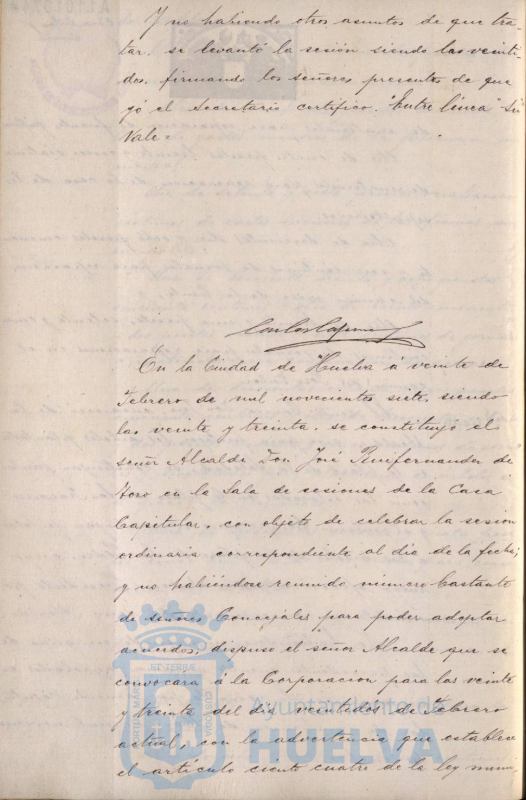 Y no habiendo otros asuntos de que tra-
tar, se levantó la sesión siendo las veinti-
dos, firmando los señores presentes de que
yó el Secretario certifico. "Entre linea" Si
Vale.
En la Ciudad de Huelva á veinte de
Febrero de mil novecientos siete, siendo
las veinte y treinta, se constituyó el
señor Alcalde Don José
de
Moro en la Sala de sesiones de la Casa
Capitular, con objeto de celebrar la sesion
ordinaria correspondiente al dia de la fecha;
y no habiéndose reunido número bastante
de señores Concejales para poder adoptar
acuerdos; dispuso el señor Alcalde que se
convocara á la Corporacion para las veinte
y treinta del dia veintidos de Febrero
actual, con la advertencia que establece
el artículo ciento cuatro de la ley muni-
Ayuntamiento de
HUELVA